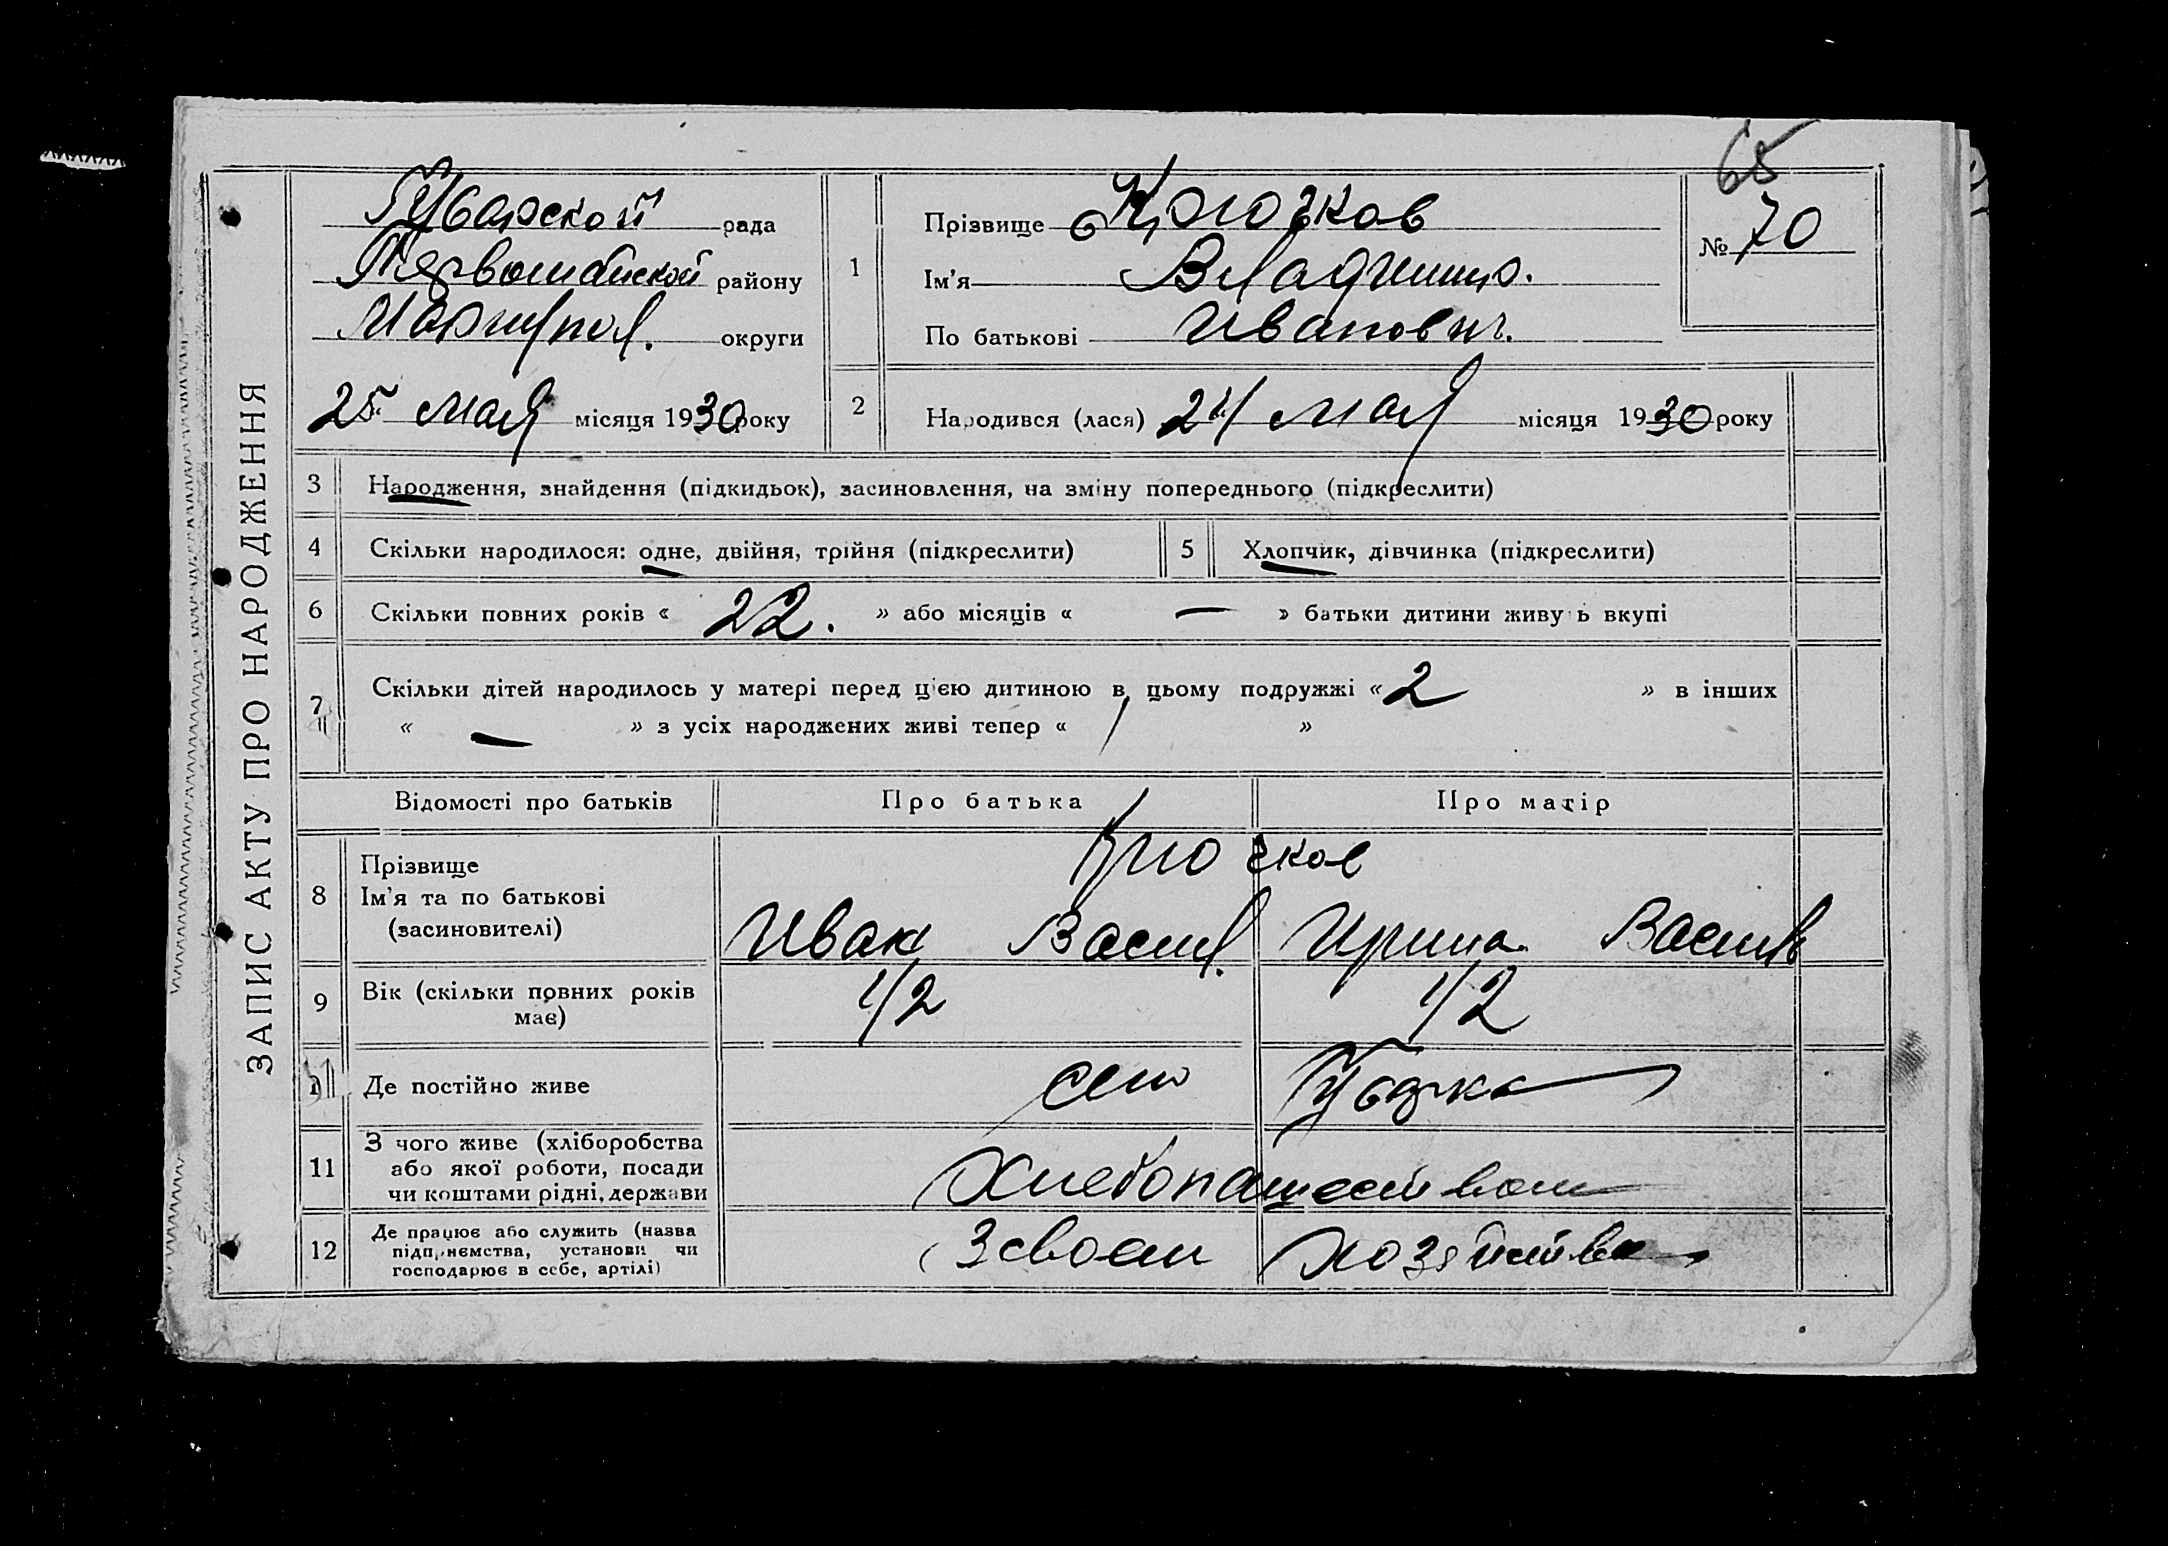 65
ЗАПИС АКТУ ПРО НАРОДЖЕННЯ
рада
Первомайской району
Мариупол. округи
25 мая місяця 1930 року
1
Прізвище Крючков
Ім'я Владимир.
По батькові Иванович.
№ 70
2
Народився (лася) 24 мая місяця 1930 року
3 Народження, знайдення (підкидьок), засиновлення, на зміну попереднього (підкреслити)
4 Скільки народилося: одне, двійня, трійня (підкреслити)
5 Хлопчик, дівчинка (підкреслити)
6 Скільки повних років « 22. » або місяців « — » батьки дитини живуть вкупі
7 Скільки дітей народилось у матері перед цією дитиною в цьому подружжі « 2 » в інших
« — » з усіх народжених живі тепер « / »
Відомості про батьків Про батька Про матір
8 Прізвище
Ім'я та по батькові
(засиновителі)
Крючков
Иван Васил. Ирина Васил
9 Вік (скільки повних років має)
42 42
Де постійно живе
село
11 З чого живе (хліборобства
або якої роботи, посади
чи коштами рідні, держави
Хлебопашеством
12 Де працює або служить (назва
підприємства, установи чи
господарює в себе, артілі)
В своем хозяйстве